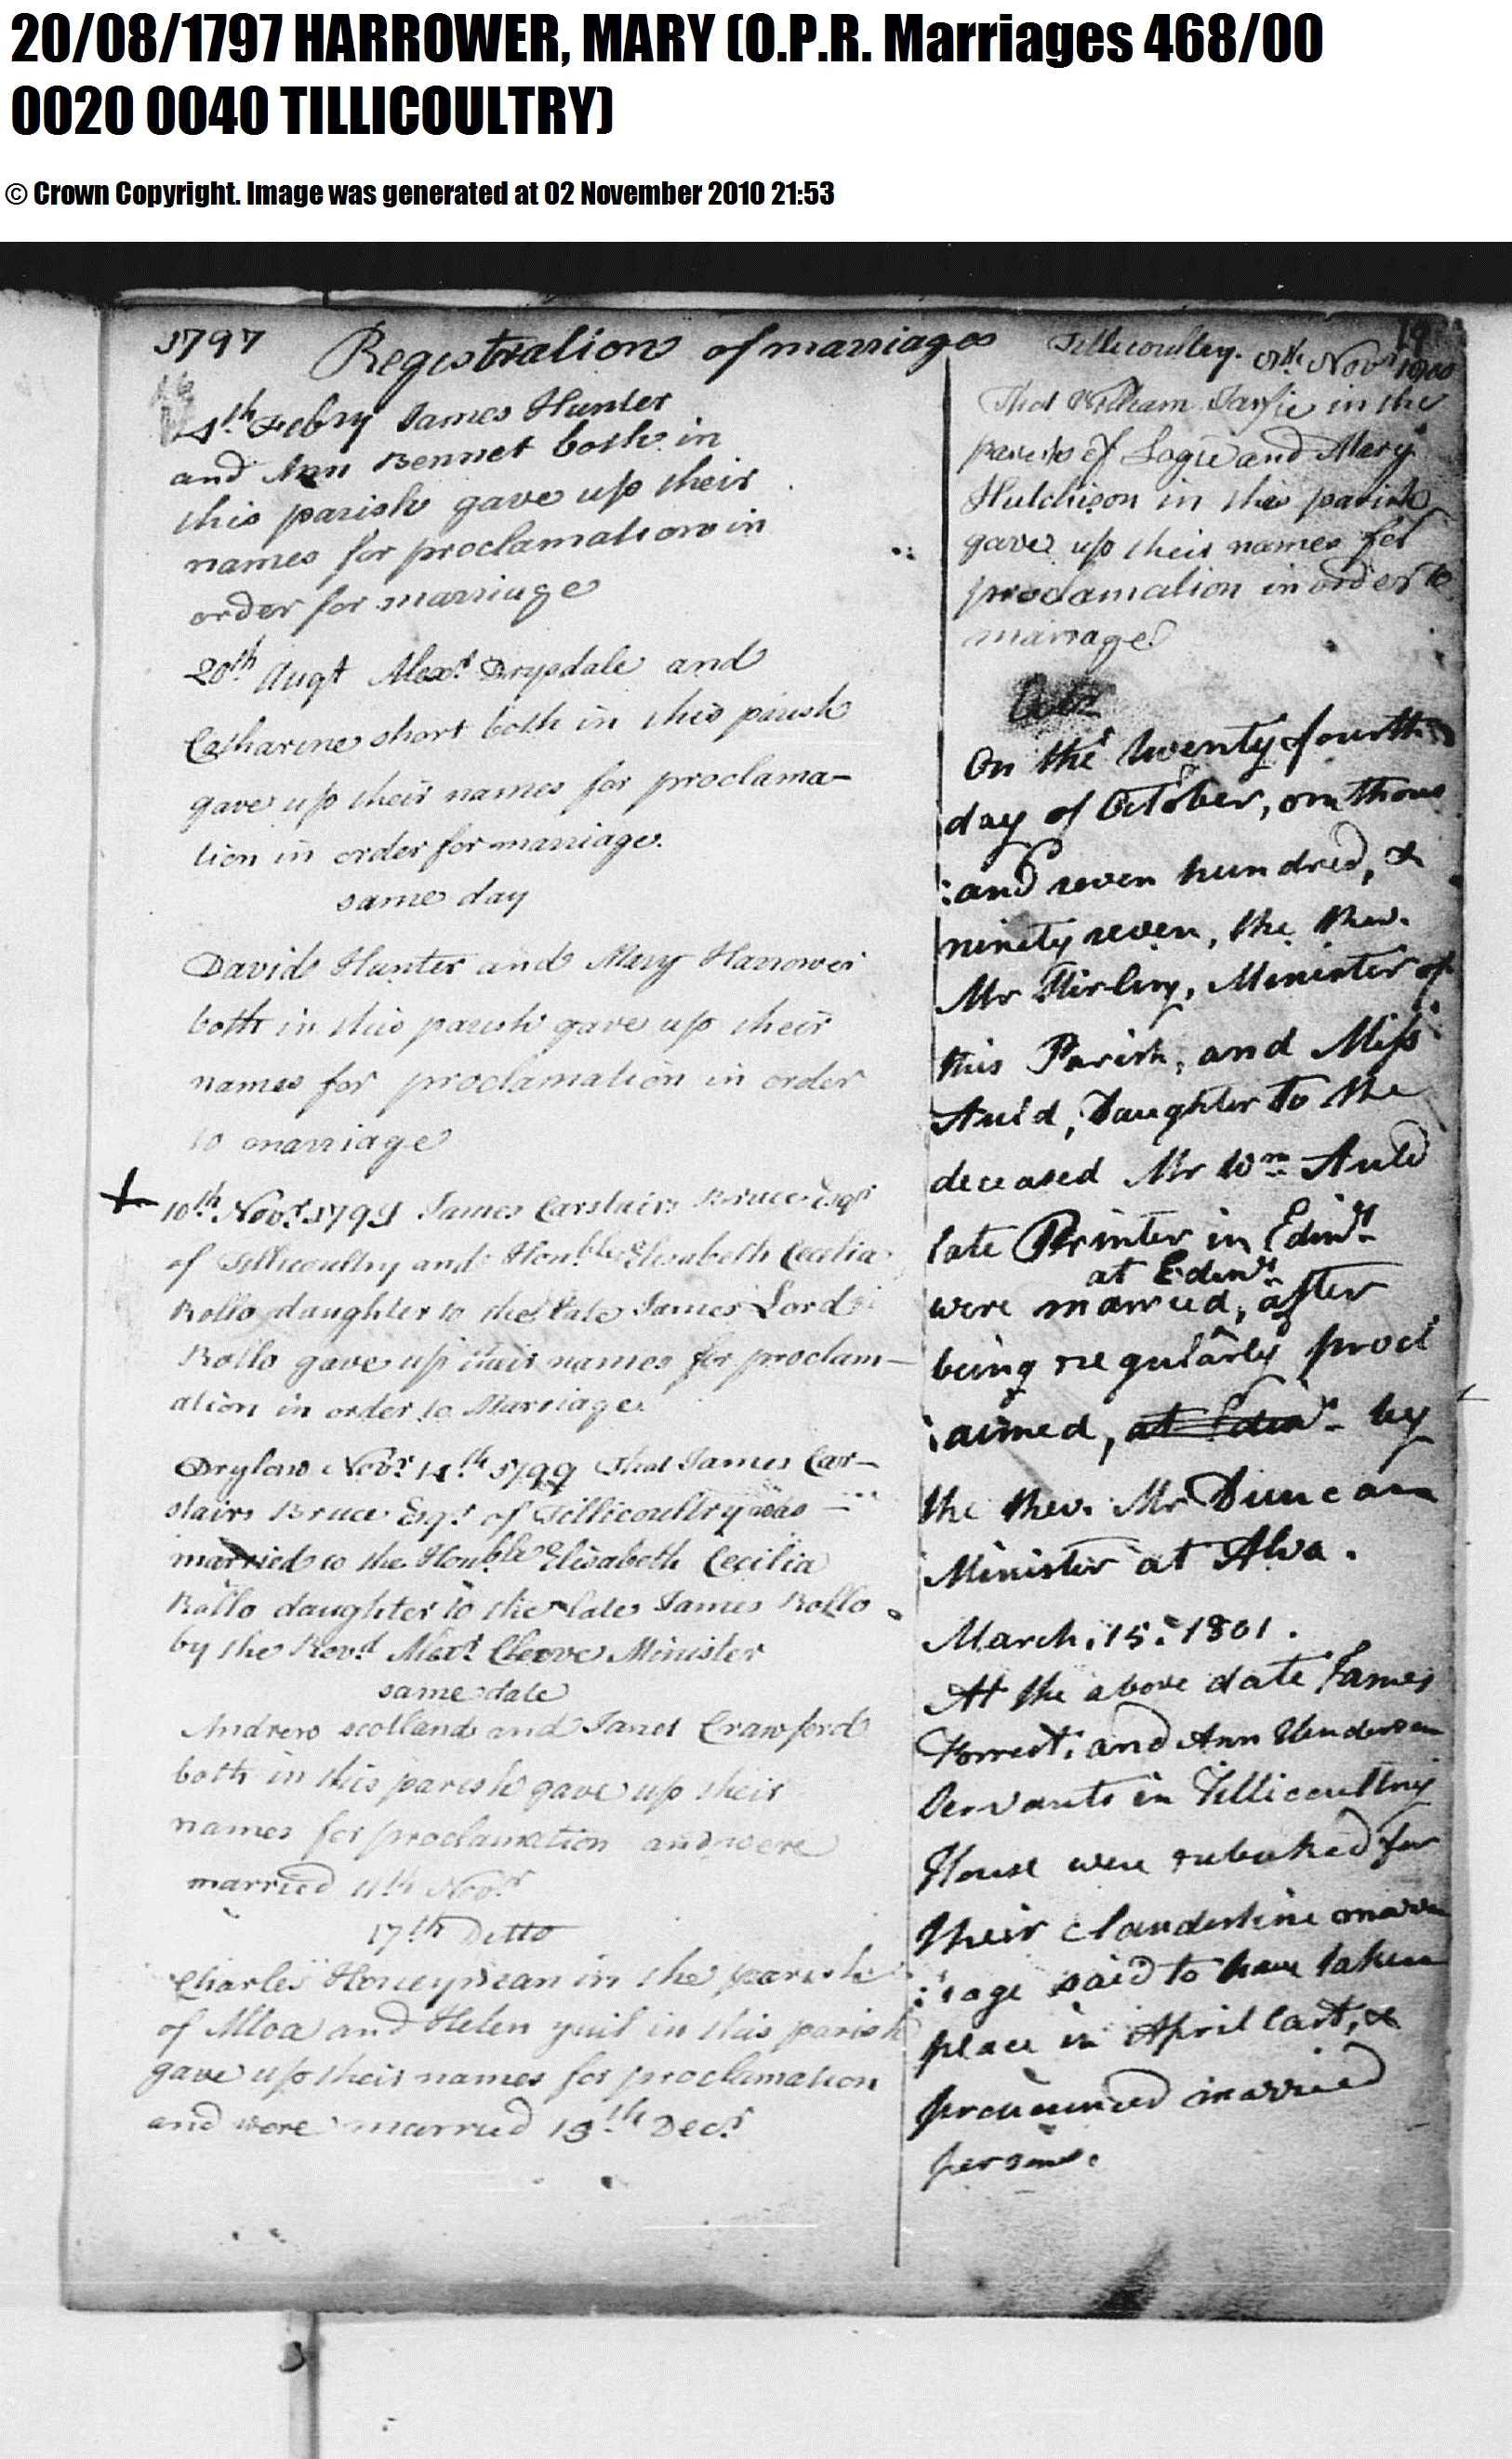 20/08/1797 HARROWER, MARY (O.P.R. Marriages 468/00
0020 0040 TILLICOULTRY)
© Crown Copyright. Image was generated at 02 November 2010 21:53
1797 Registration of marriages
4th Febry James Hunter
and Ann Bennet both in
this parish gave up their
names for proclamation in
order for marriage
20th Augt Alexr Drysdale and
Catharine short both in this parish
gave up their names for proclama-
tion in order for marriage.
same day
David Hunter and Mary Harrower
both in this parish gave up their
names for proclamation in order
to marriage
10th Novr 1799 James Carstairs Bruce Esqr
of Tillicoultry and Honble Elisabeth Cecilia
Rollo daughter to the late James Lord
Rollo gave up their names for proclam-
ation in order to Marriage
Novr 14th 1799 That James Car-
stairs Bruce Esqr of Tillicoultry was
married to the Honble Elisabeth Cecilia
Rollo daughter to the late James Rollo
by the Revd Alexr Minister
same date
Andrew scotland and Janet Crawford
both in this parish gave up their
names for proclamation and were
married 11th Novr
17th Ditto
Charles Honeyman in the parish
of Alloa and Helen in this parish
gave up their names for proclamation
and were married 13th Decr
19
Tillicoultry. Novr 1800
That William in the
parish of Logie and Mary
Hutchison in this parish
gave up their names for
proclamation in order to
marriage
On the twenty fourth
day of October, one thous
:and seven hundred, &
ninety seven, the Rev.
Mr Stirling, Minister of
this Parish, and Miss
Auld, Daughter to the
deceased Mr Wm Auld
late Printer in Edinr
at Edinr
were married, after
being regularly procl
:aimed, at Edinr by
the Rev. Mr Duncan
Minister at Alva.
March. 15. 1801.
At the above date James
Forrest, and Ann Henderson
Servants in Tillicoultry
House were rebuked for
their clandestine marr
:iage said to have taken
place in April last, &
pronounced married
persons.